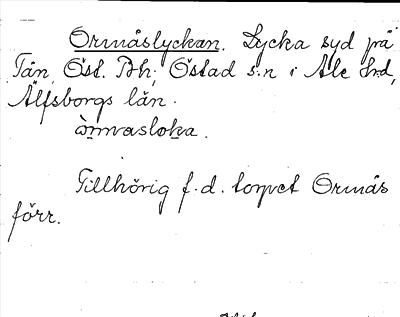 Ormåslyckan. Lycka syd på
Tån, Öst. Bh; Östad s:n i Ale Hrd,
Älfsborgs län.
òrmasloka.
Tillhörig f.d. torpet Ormås
förr.